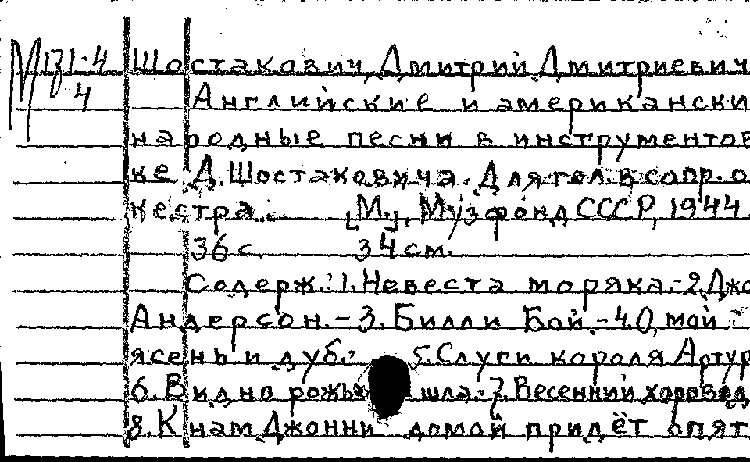 М 131-4 Шостакович, Дмитрий Дмитриевич
4 Английские и американски
народные песни в инструментов
ке Д. Шостаковича. Для гол. в сопр. о
кестра. [М.], Музфонд СССР, 1944
36 с. 34 см.
Содерж.: 1. Невеста моряка.-2. Джо
Андерсон.-3. Билли Бой.-4. О, мой
ясень и дуб. 5. Слуги короля Артур
6. Видно рожь шла.-7. Весенний хоровод
8. К нам Джонни домой придёт опят